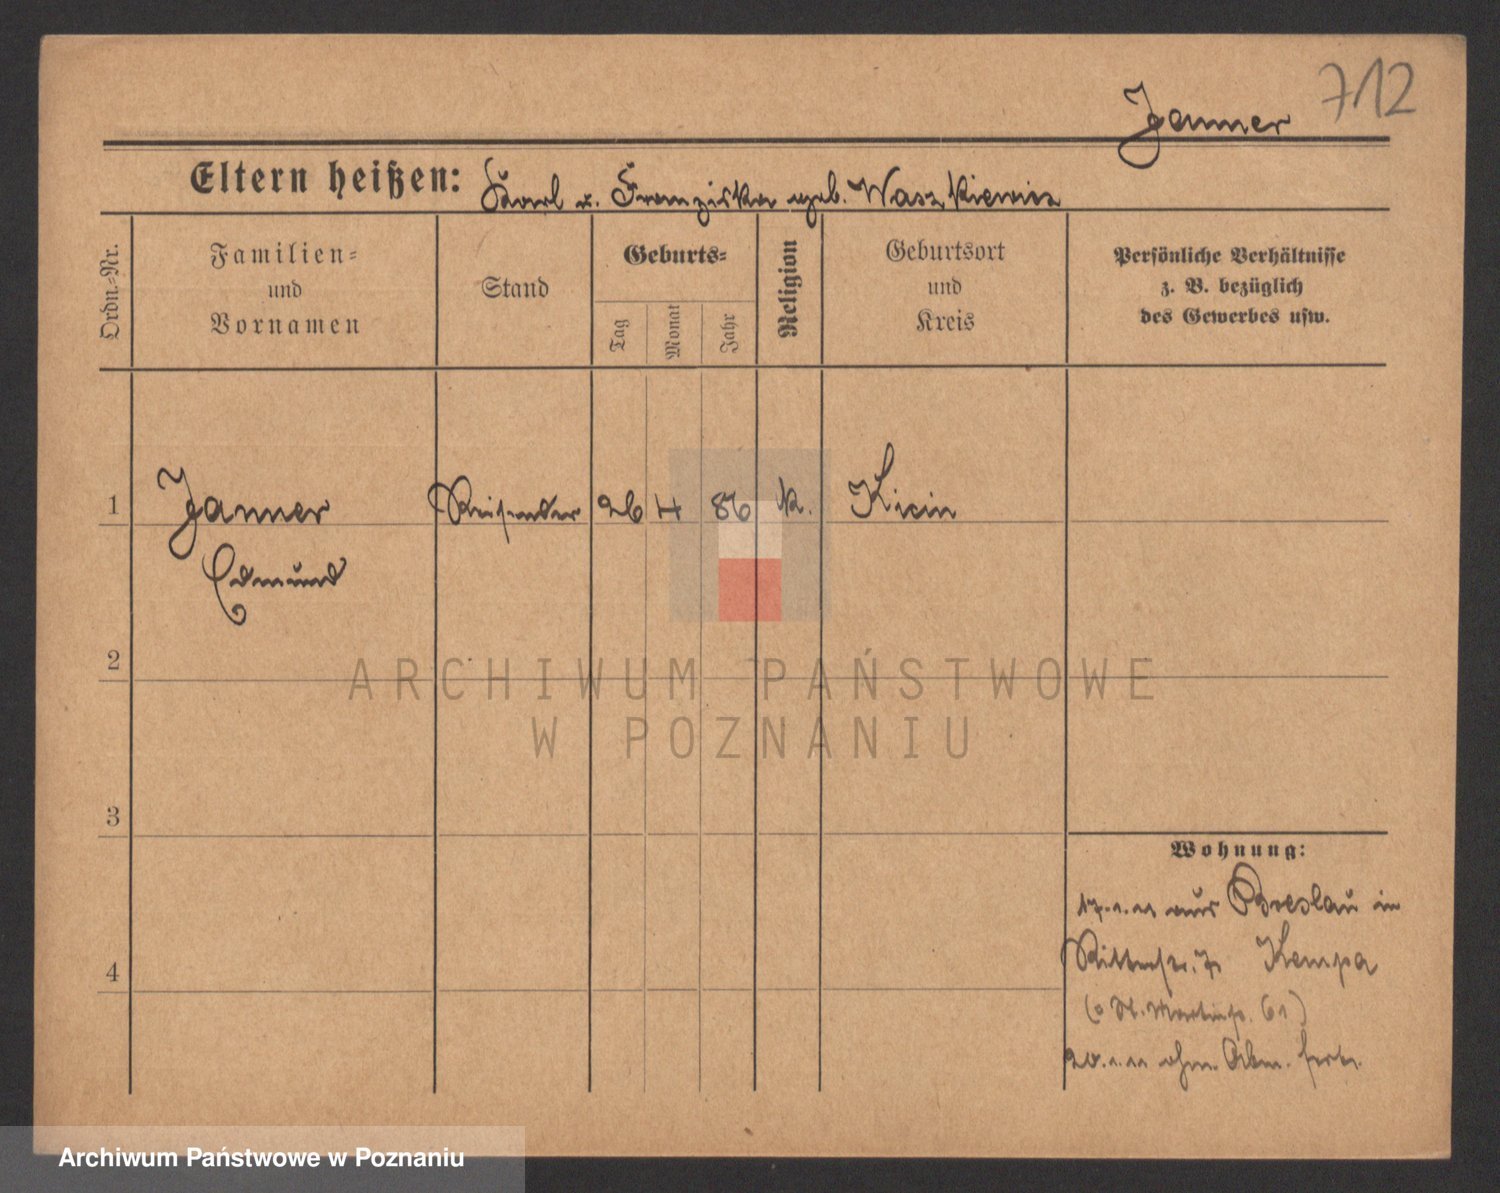 712
Janner
Eltern heißen: Karl u. Franziska geb. Waszkiewicz
Ordn.-Nr.
Familien-
und
Vornamen
Stand
Geburts-
Tag
Monat
Jahr
Religion
Geburtsort
und
Kreis
Persönliche Verhältnisse
z. B. bezüglich
des Gewerbes usw.
1 Janner Reisender 26 4 86 k. Kicin
Edmund
2
3
4
Wohnung:
17.1.11 aus Breslau in
Ritterstr. Kempa
(St. Martinstr. 61)
20.1.11 ohne Abm. fort.
ARCHIWUM PAŃSTWOWE
W POZNANIU
Archiwum Państwowe w Poznaniu